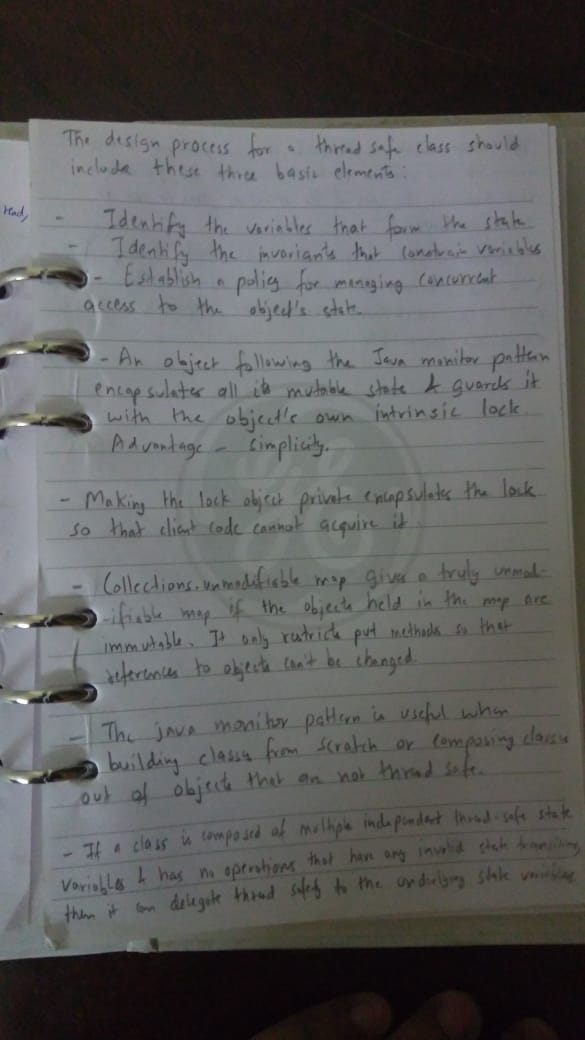 The design process for a thread safe class should
include these three basic elements:
read,
- Identify the variables that form the state
- Identify the invariants that constrain variables
- Establish a policy for managing concurrent
access to the object's state.
- An object following the Java monitor pattern
encapsulates all its mutable state & guards it
with the object's own intrinsic lock.
Advantage - Simplicity.
- Making the lock object private encapsulates the lock
so that client code cannot acquire it.
- Collections.unmodifiable map gives a truly unmod-
-ifiable map if the objects held in the map are
immutable. It only restricts put methods so that
references to objects can't be changed.
- The java monitor pattern is useful when
building classes from scratch or composing classes
out of objects that are not thread safe.
- If a class is composed of multiple independent thread-safe state
variables & has no operations that have any invalid state transitions,
then it can delegate thread safety to the underlying state variables.